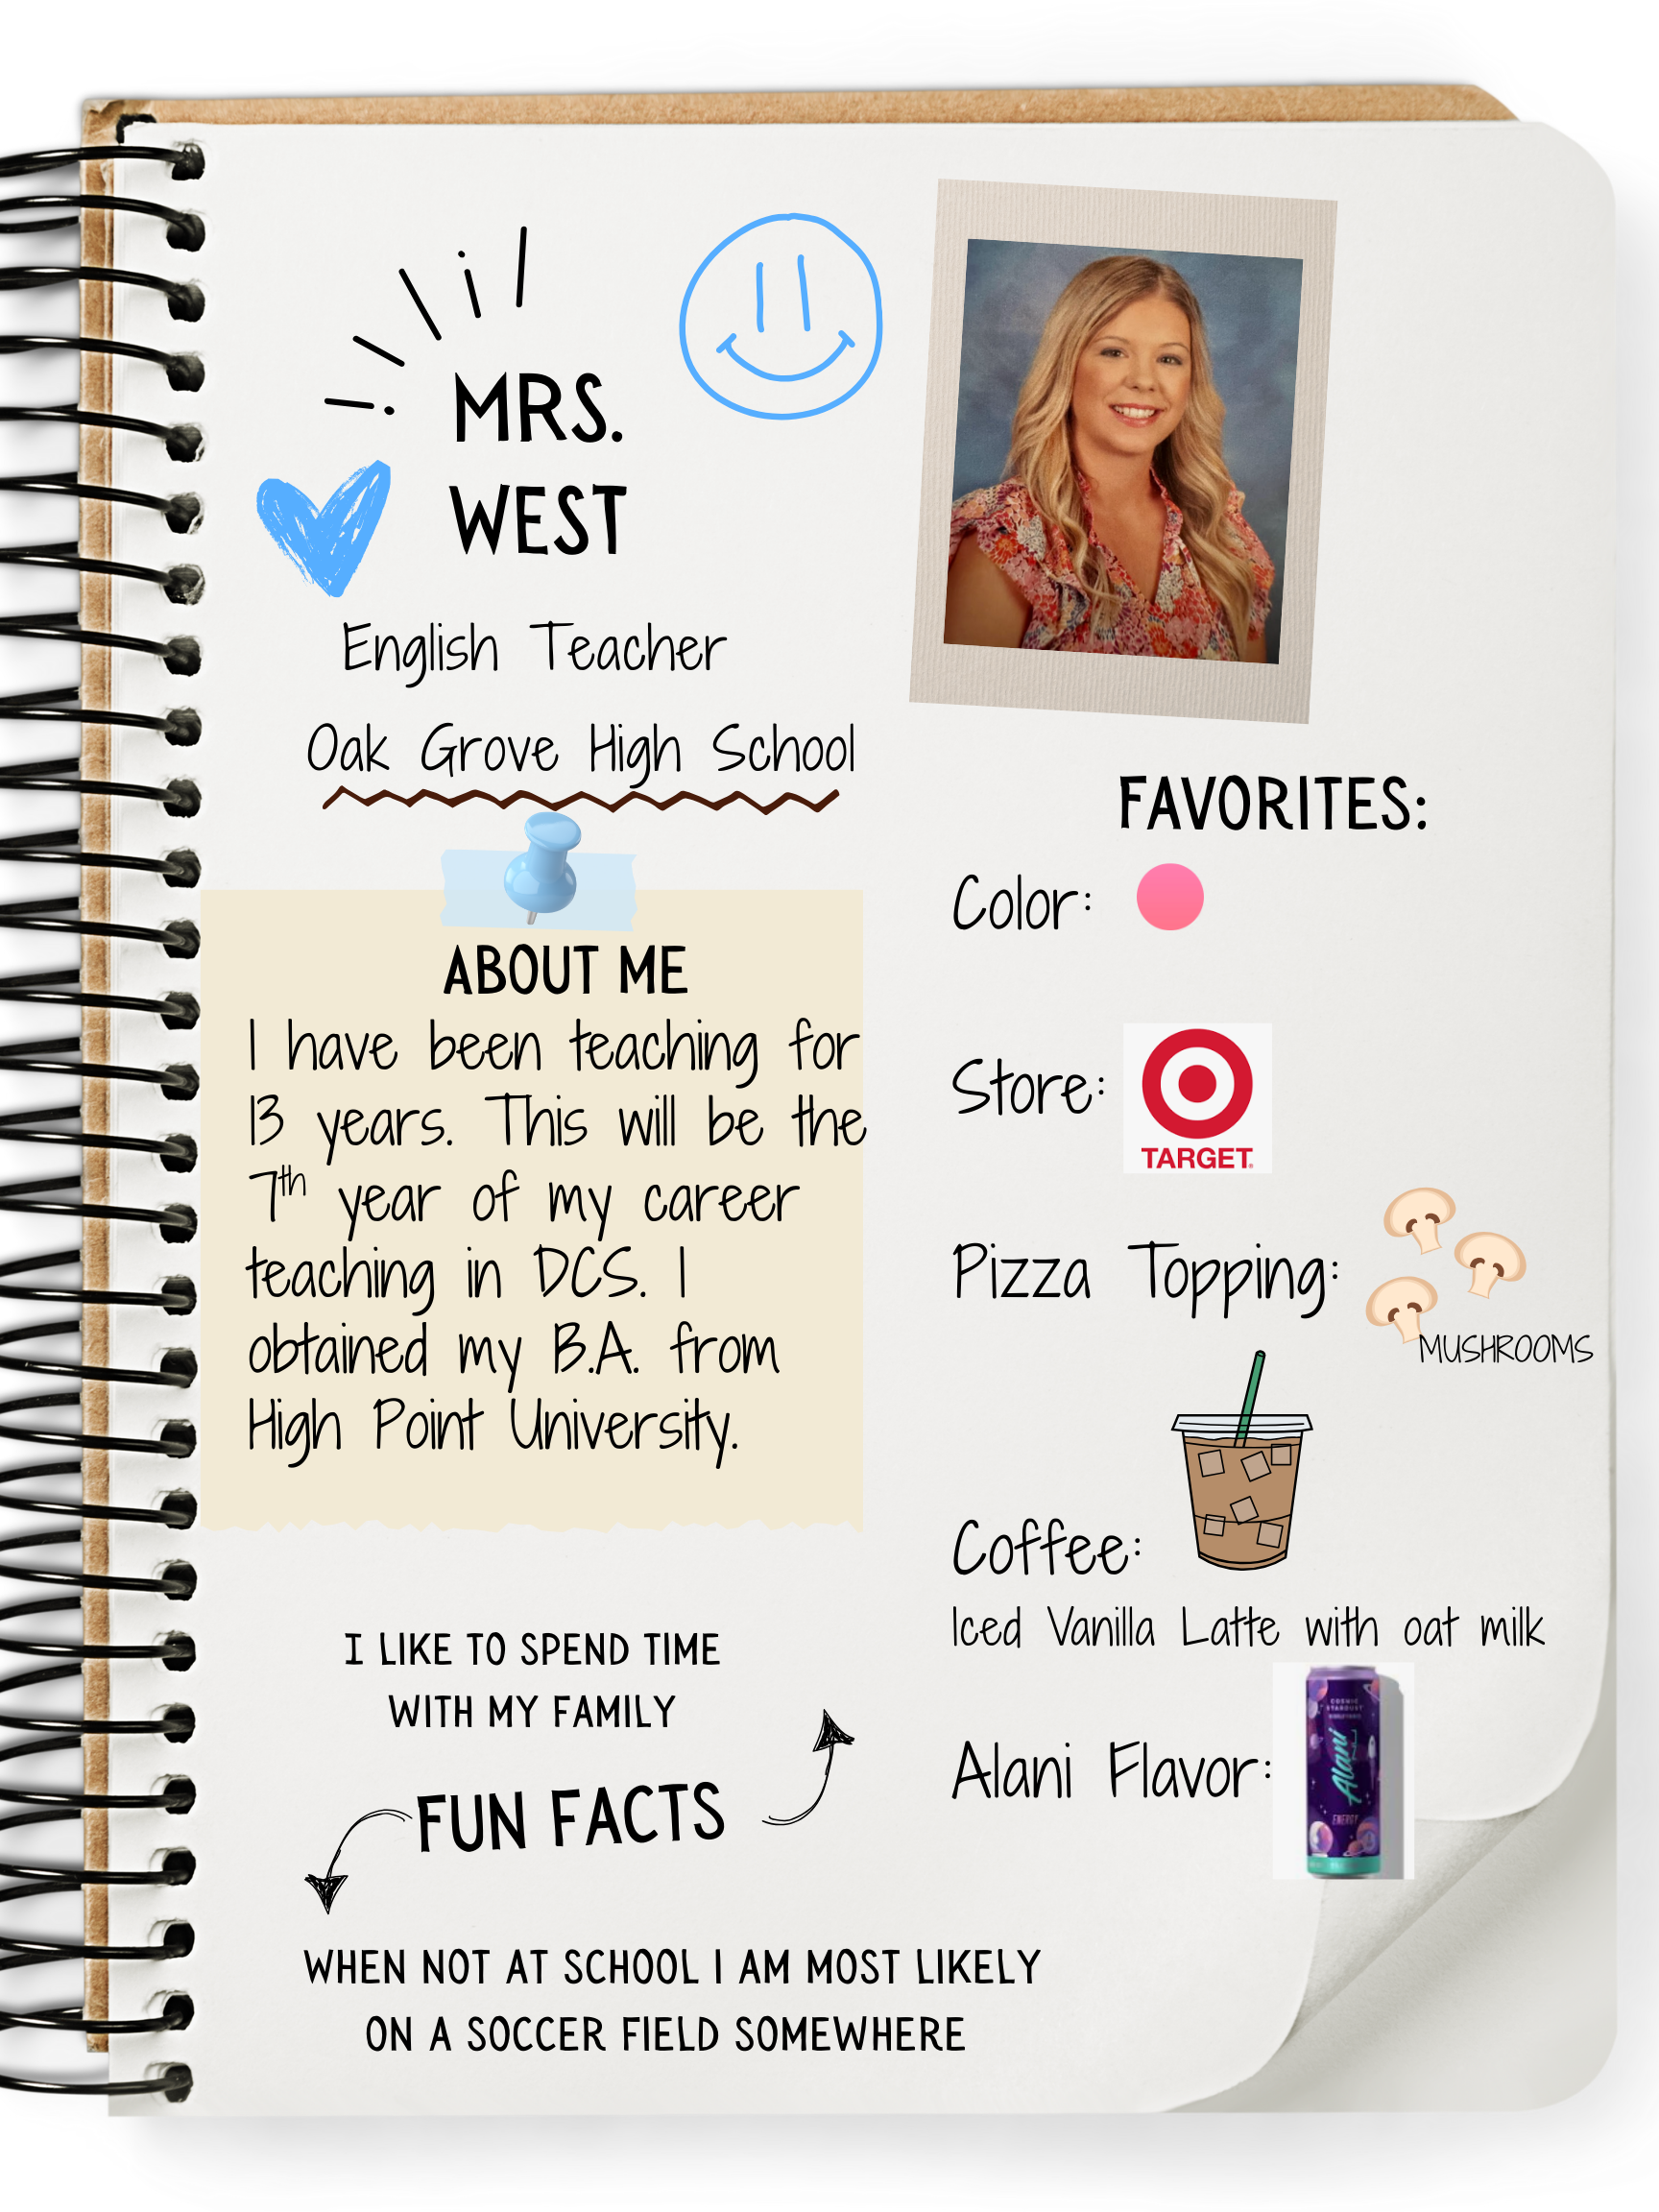 MRS.
WEST
English Teacher
Oak Grove High School
ABOUT ME
I have been teaching for
13 years. This will be the
7th year of my career
teaching in DCS. I
obtained my B.A. from
High Point University.
I LIKE TO SPEND TIME
WITH MY FAMILY
FUN FACTS
WHEN NOT AT SCHOOL I AM MOST LIKELY
ON A SOCCER FIELD SOMEWHERE
FAVORITES:
Color:
Store:
TARGET
Pizza Topping:
MUSHROOMS
Coffee:
Iced Vanilla Latte with oat milk
Alani Flavor:
COSMIC
STARDUST
Alani
ENERGY